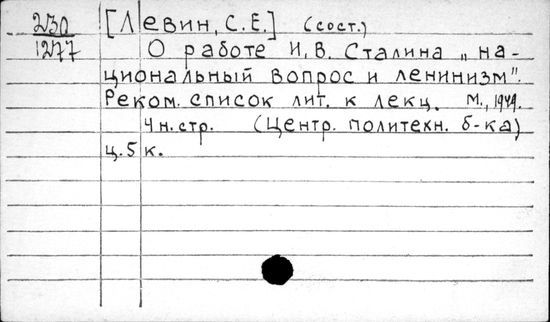 230 [Левин, С.Е.] (сост.)
1277 О работе И.В. Сталина „на-
циональный вопрос и ленинизм".
Реком. список лит. к лекц. М., 1949.
4 н.стр. (Центр. политехн. б-ка)
ц. 5 к.